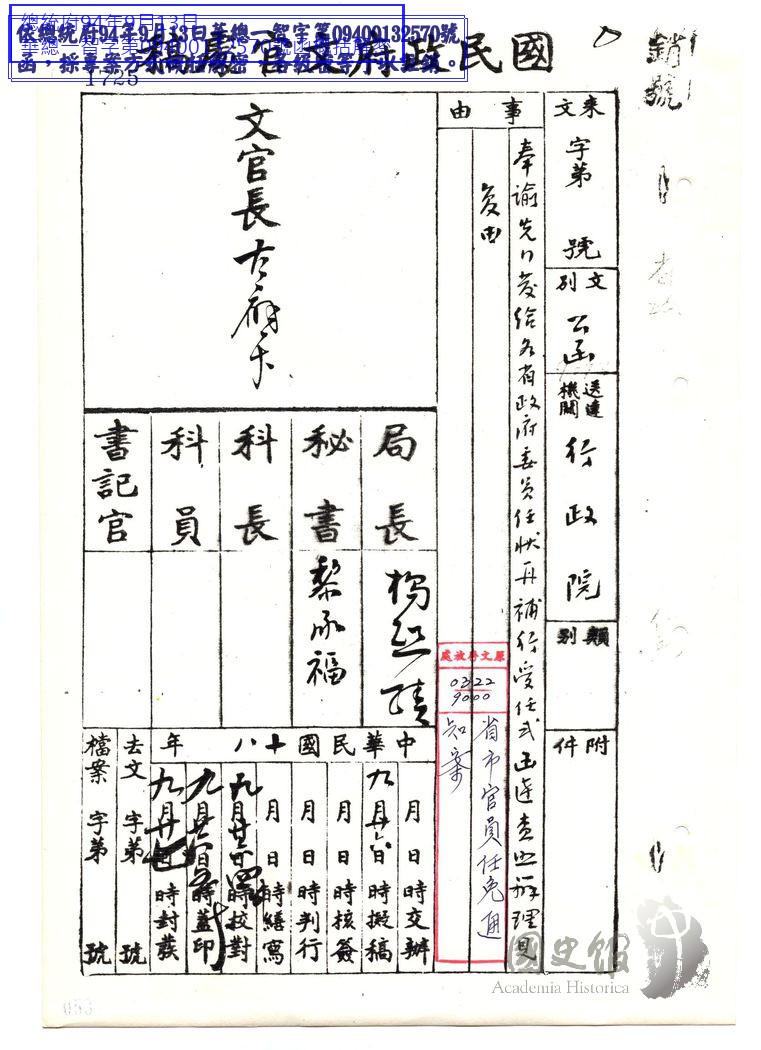 總統府94年9月13日
依總統府94年9月13日華總一智字第09400132570號
函,採專案方式
1723
國民政府文官處稿
銷號
來文 字第 號
文別 公函
送達機關 行政院
類別
附件
事由
奉諭先行發給各省政府委員任狀再補行受任式函達查照辦理見
復由
文官長古應芬
局長 楊熙績
秘書 黎承福
科長
科員
書記官
府文官處
0322
9000
省市官員任免通
知案
中華民國十八年
月 日 時交辦
九月廿六日 時擬稿
月 日 時核簽
月 日 時判行
月 日 時繕寫
九月廿六日 時校對
九月廿六日 時蓋印
九月廿七日 時封發
去文 字第 號
檔案 字第 號
國史館
Academia Historica
053